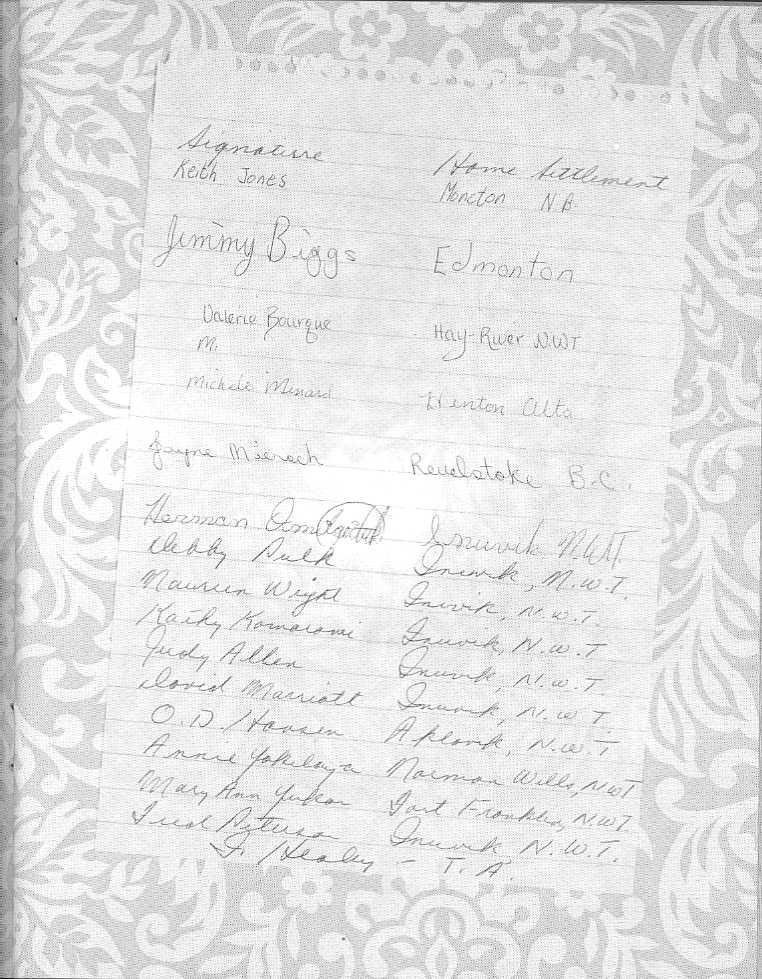 Signature Home Settlement
Keith Jones Moncton N.B.
Jimmy Biggs Edmonton
Valerie Bourque Hay-River NWT
M.
Michele Menard Hinton Alta
Jayne Mierach Revelstoke B.C.
Herman Inuvik N.W.T.
Debby Pulk Inuvik, N.W.T.
Maureen Wright Inuvik, N.W.T.
Kathy Komaromi Inuvik, N.W.T
Judy Allen Inuvik, N.W.T.
David Marriott Inuvik, N.W.T.
O.D. Hansen Aklavik, N.W.T
Annie Yakeleya Norman Wells, NWT
Mary Ann Yukon Fort Franklin, N.W.T.
Fred Peterson Inuvik, N.W.T.
F Healey - T.A.